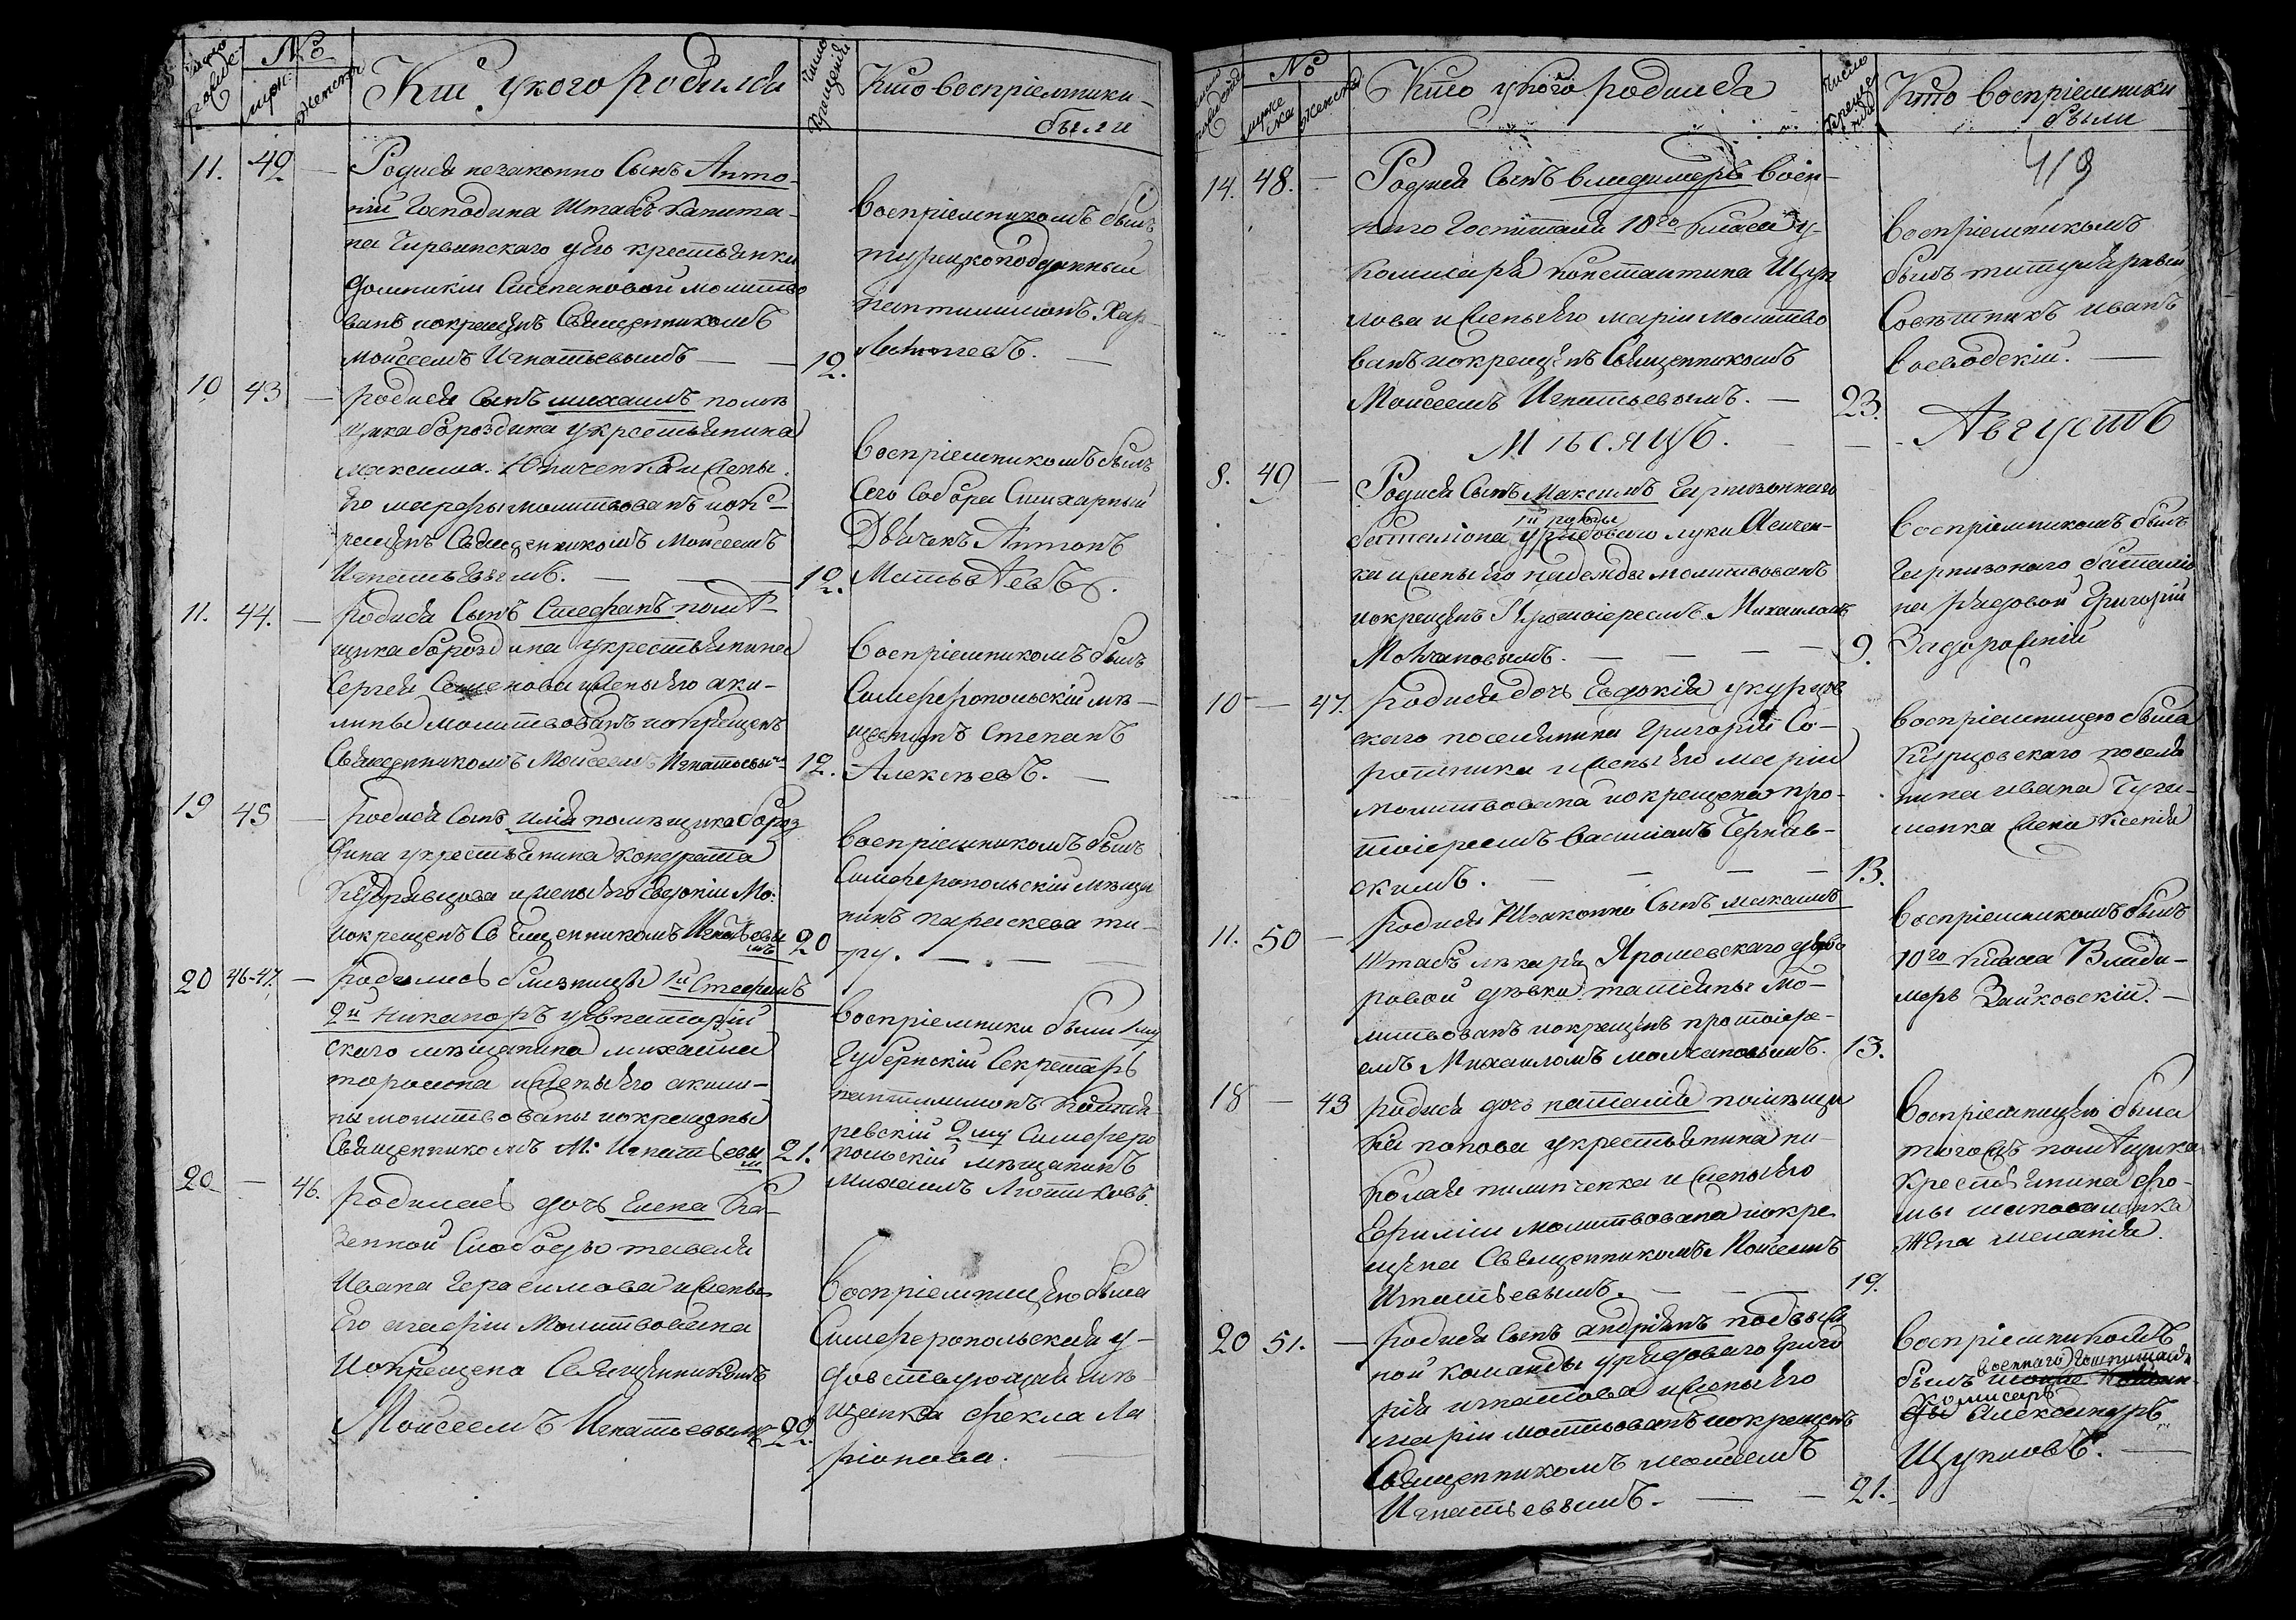 Число рожде-
№
муж:
женск:
Кто укого родился
Число Крещенія
Кто восприемники
были
11.
42
Родися незаконно Сынъ Анто-
ній Господина Штабсъ Капита-
на укго крестьянки
Степановой молитво
ванъ иокрещенъ Священникомъ
Моисеемъ Игнатьевымъ
12.
Восприемникомъ былъ
турецкоподданный
10
43
родися Сынъ михаилъ помѣ
щика бороздина укрестьянина
максима. и жены
Его марфы молитвованъ иок
рещенъ Священникомъ Моисеемъ
Игнатьевымъ.
12.
Восприемникомъ былъ
Сего Собора Стихарный
Дьячекъ Антонъ
Матвѣевъ.
11.
44.
родися Сынъ Стефанъ помѣ
щика бороздина укрестьянина
Сергея Семенова ижены Его аки-
лины молитвованъ иокрещенъ
Священникомъ Моисеемъ Игнатьевым
12.
Восприемникомъ былъ
Симферопольскій мѣ-
щанинъ Степанъ
Алексѣевъ.
19
45
родися Сынъ илія помѣщика бороз
дина укрестьянина кондрата
Кудрявцова ижены Его Евдокіи Мо:
иокрещенъ Священникомъ Игнатьевы
мъ
20
Восприемникомъ былъ
Симферопольскій мѣща
нинъ параскева ти-
ру.
20
46-47.
родились близнецы 1й Стефанъ
2й никаноръ уевпаторій
скаго мѣщанина михаила
ижены Его акили-
ны молитвованы иокрещены
Священникомъ М: Игнатьевы
м
21.
Восприемники были 1му
Губернскій Секретарь
пантилимонъ
2му Симферо
польскій мѣщанинъ
Михаилъ
20
46.
родилась дочь Елена Ка-
зенной Слободы
Ивана Герасимова ижены
Его маріи Молитвована
Иокрещена Священникомъ
Моисеемъ Игнатьевымъ
22.
Восприемницею была
Симферопольская у-
довствующая мѣ-
щанка фекла Ла
ріонова.
№
муже
ска
женска
Кто укого родился
Число
крещенія
Кто восприемники
были
419
14.
48.
Родися Сынъ владимеръ воен-
наго Госпиталя 10го Класа у
Комисара Константина Щуп
лова ижены Его маріи Молитво
ванъ иокрещенъ Священникомъ
Моисеемъ Игнатьевымъ.
23.
Восприемникомъ
былъ титулярный
Совѣтникъ иванъ
воеводскій.
Мѣсяцъ.
Августъ
8.
49
Родися Сынъ Максимъ Гарнизоннаго
1й роты
баталіона урядоваго луки
ка ижены Его надежды молитвованъ
иокрещенъ Протоіереемъ Михаиломъ
Молчановымъ.
9.
Восприемникомъ былъ
Гарнизонаго баталіо
на рядовой Григорій
Задорожній
10
47.
родися дочь Евдокія укурцов
скаго поселянина Григорія Со-
ротника ижены Его маріи
молитвована иокрещена про-
тоіереемъ Василіемъ Чернав-
скимъ.
13.
Восприемницею была
Курцовскаго поселя
нина ивана Чуги-
менка жена Ксенія
11.
50
родися Незаконно Сынъ михаилъ
Штабъ лѣкаря Ярошевскаго удво
ровой дѣвки таттяны Мо-
литвованъ иокрещенъ протоіере-
емъ Михаиломъ молчановымъ.
13.
Восприемникомъ былъ
10го Класа Влади-
меръ Зайковскій.
18
43
родись дочь наталія помѣщи
ка попова укрестьянина ни-
колая пилипченка и жены Его
Ефиміи молитвована иокре
щена Священникомъ Моисеемъ
Игнатьевымъ.
19.
Восприемницею была
тогожъ помѣщика
Крестьянина фо-
мы шаповаленка
жена меланія.
20
51.
родися Сынъ андріянъ подвыж
ной команды урядоваго Григо
рія игнатова ижены Его
маріи молитвованъ иокрещенъ
Священникомъ моисеемъ
Игнатьевымъ.
21.
Восприемникомъ
военнаго Гошпиталя
былъ
Комисаръ
Александръ
Щупловъ.